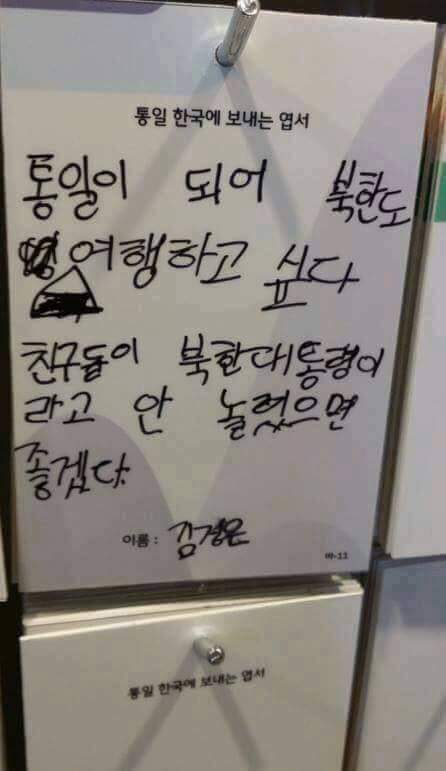 통일 한국에 보내는 엽서
통일이 되어 북한도
여행하고 싶다
친구들이 북한대통령이
라고 안 놀렸으면
좋겠다.
이름 : 김정은
m-11
통일 한국에 보내는 엽서